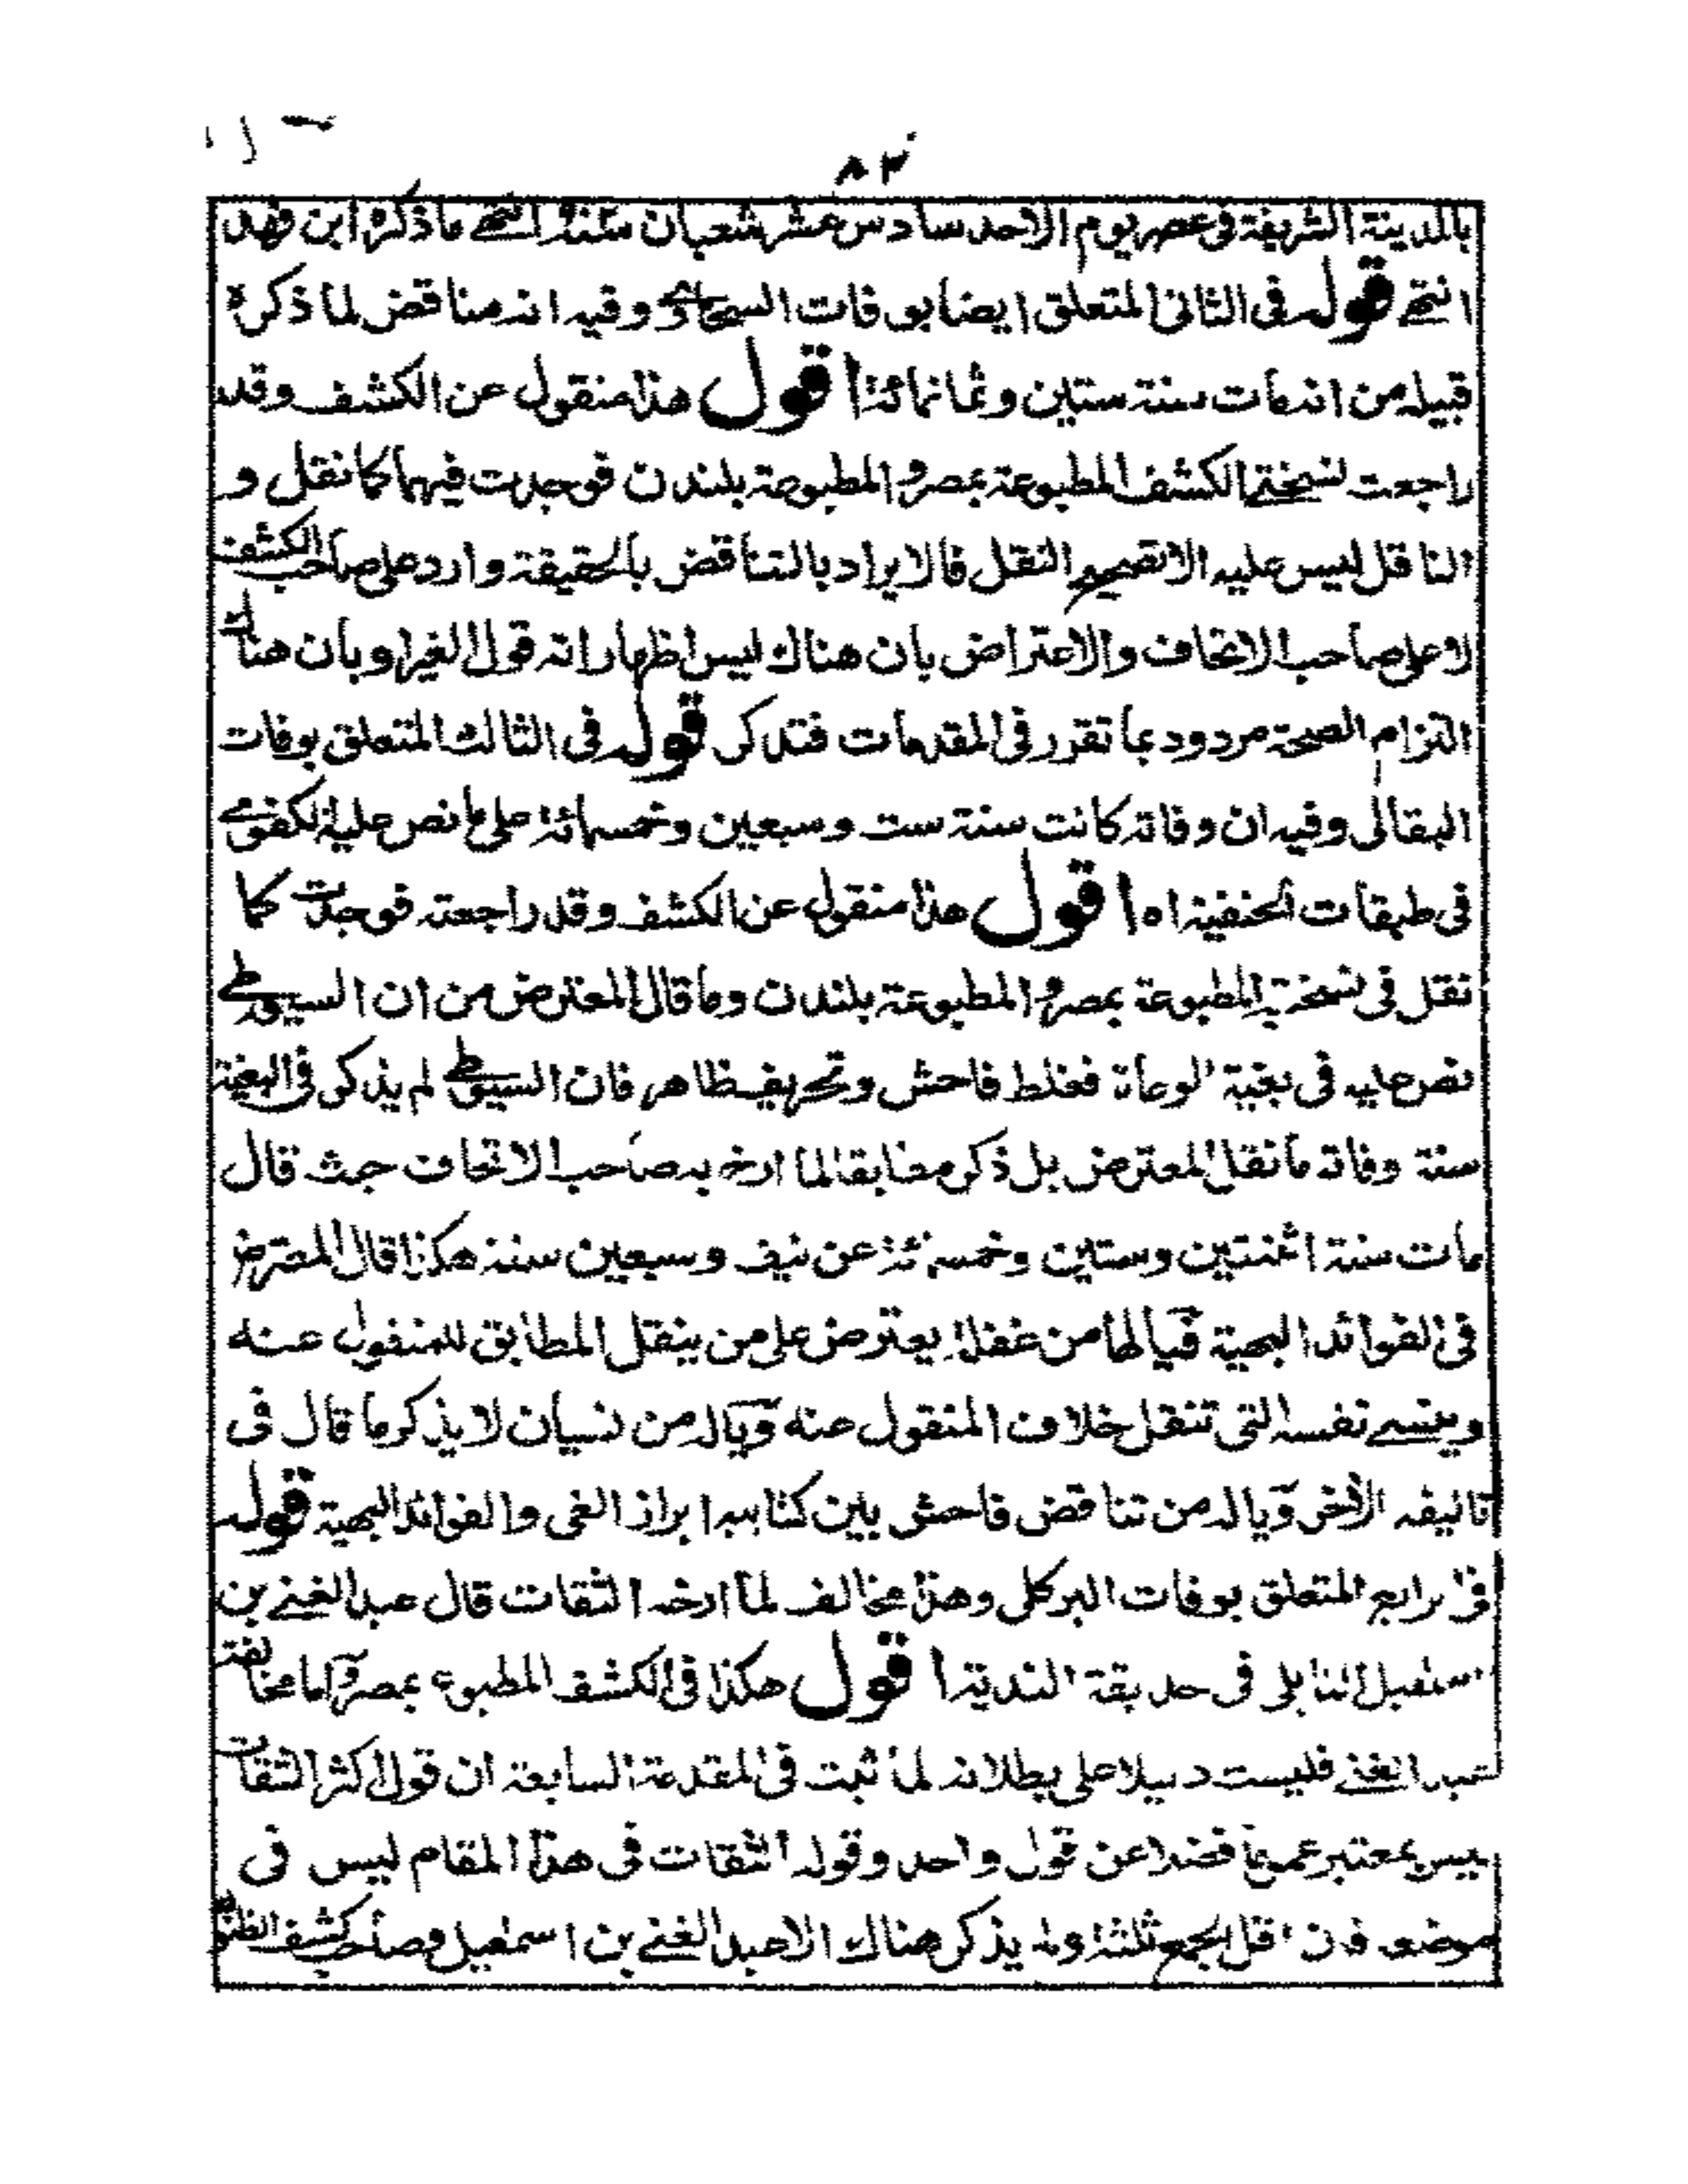 ٨٣
بالمدينة الشريفة فى عصر يوم الاحد سادس عشر شعبان سنة انتهى ما ذكره ابن فهد
انتهى قوله فى الثانى المتعلق ايضا بوفات السخاوى وفيه انه مناقض لما ذكره
قبيله من انه مات سنة ستين وثمانمائة اقول هذا منقول عن الكشف وقد
راجعت نسختى الكشف المطبوعة بمصر والمطبوعة بلندن فوجدت فيهما كما نقل و
الناقل ليس عليه الا تصحيح النقل فالايراد بالتناقض بالحقيقة وارد على صاحب الكشف
لا على صاحب الاتحاف والاعتراض بان هناك ليس اظهار انه قول الغير او بان هناك
التزام الصحة مردود بما تقرر فى المقدمات فتذكر قوله فى الثالث المتعلق بوفات
البقالى وفيه ان وفاته كانت سنة ست وسبعين وخمسمائة على ما نص عليه الكفوى
فى طبقات الحنفية اه اقول هذا منقول عن الكشف وقد راجعته فوجدت كما
نقل فى نسختيه المطبوعة بمصر والمطبوعة بلندن وما قال المعترض من ان السيوطى
نص عليه فى بغية الوعاة فغلط فاحش وتحريف ظاهر فان السيوطى لم يذكر فى البغية
سنة وفاته ما نقل المعترض بل ذكر مطابقا لما ارخ به صاحب الاتحاف حيث قال
مات سنة اثنتين وستين وخمسمائة عن نيف وسبعين سنة هكذا قال المعترض
فى الفوائد البهية فيا لها من غفلة يعترض على من ينقل المطابق للمنقول عنه
وينسى نفسه التى تنقل خلاف المنقول عنه ويا له من نسيان لا يذكر ما قال فى
تاليفه الأخر ويا له من تناقض فاحش بين كتابيه ابراز الغى والفوائد البهية قوله
فى الرابع المتعلق بوفات البركلى وهذا مخالف لما ارخه الثقات قال عبد الغنى بن
اسمعيل النابلى فى حديقة الندية اقول هكذا فى الكشف المطبوع بمصر واما مخالفة
عبد الغنى فليست دليلا على بطلانه لما ثبت فى المقدمة السابعة ان قول اكثر الثقات
ليس بمعتبر عموما فضلا عن قول واحد وقوله الثقات فى هذا المقام ليس فى
موضعه فان اقل الجمع ثلثة ولم يذكر هناك الا عبد الغنى بن اسمعيل وصاحب كشف الظنون